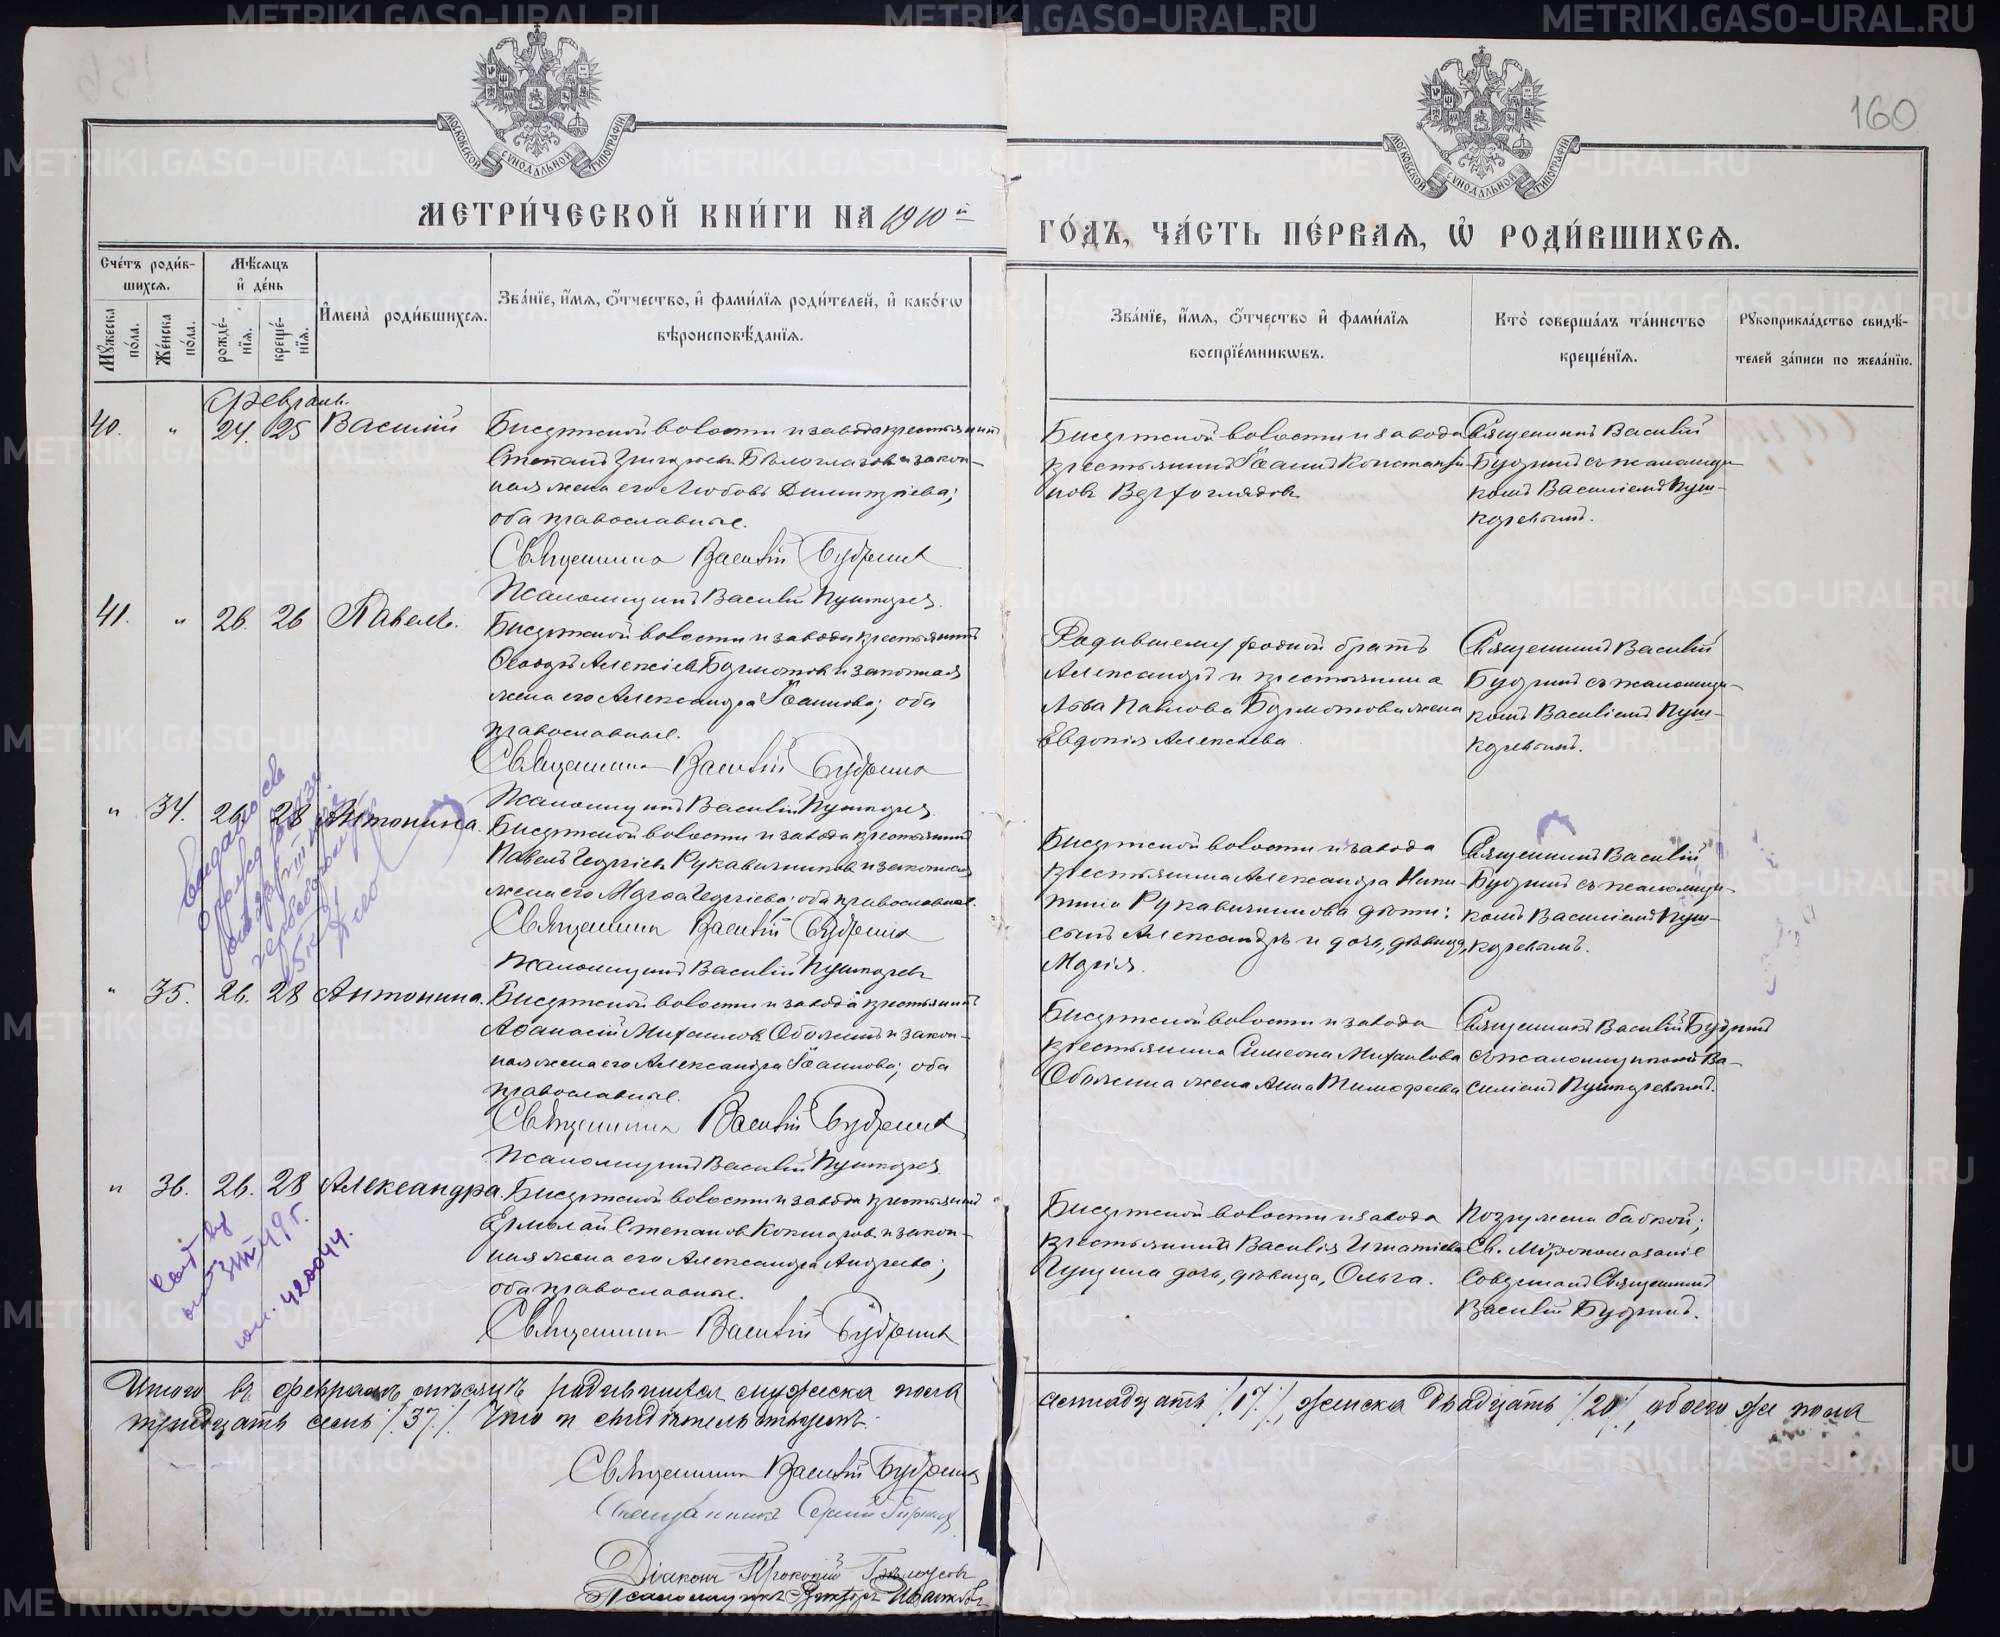 160
МОСКОВСКОЙ СѴНОДАЛЬНОЙ ТИПОГРАФІИ
МОСКОВСКОЙ СѴНОДАЛЬНОЙ ТИПОГРАФІИ
МЕТРИ́ЧЕСКОЙ КНИ́ГИ НА 1910 й
ГО́ДЪ, ЧА́СТЬ ПЕ́РВАЯ, Ѡ҆ РОДИ́ВШИХСЯ.
Сче́тъ роди́в-
шихся.
Мꙋ́жеска по́ла.
Же́нска по́ла.
Мѣ́сяцъ
и҆ де́нь
рожде́-
нїя.
креще́-
нїя.
И҆мена̀ роди́вшихся.
Зва́нїе, и҆́мя, ѻ҆́тчество, и҆ фами́лїя роди́телей, и҆ како́гѡ
вѣроисповѣ́данїя.
Зва́нїе, и҆́мя, ѻ҆́тчество и҆ фами́лїя
воспрїе́мникѡвъ.
Кто̀ соверша́лъ та́инство
креще́нїя.
Рꙋкоприкла́дство свидѣ́-
телей за́писи по жела́нїю.
Февраль.
40. " 24. 25 Василій
Бисертской волости и завода крестьянинъ
Стефанъ Григорьевъ Бѣлоглазовъ и закон-
ная жена его Любовь Димитріева;
оба православные.
Священникъ Василій Будринъ
Псаломщикъ Василій Пушкаревъ.
Бисертской волости и завода
крестьянинъ Іоаннъ Константи-
новъ Ведфоглядовъ
Священникъ Василій
Будринъ съ псаломщи-
комъ Василіемъ Пуш-
каревымъ.
41. " 26. 26 Павелъ.
Бисертской волости и завода крестьянинъ
Ѳеодоръ Алексіевъ Бормотовъ и законная
жена его Александра Іоаннова; оба
православные.
Священникъ Василій Будринъ
Псаломщикъ Василій Пушкаревъ.
Родившему родной братъ
Александръ и крестьянина
Льва Павлова Бормотова жена
Евдокія Алексѣева
Священникъ Василій
Будринъ съ псаломщи-
комъ Василіемъ Пуш-
каревымъ.
" 34. 26. 28 Антонина.
Бисертской волости и завода крестьянинъ
Павелъ Георгіевъ Рукавишниковъ и законная
жена его Марѳа Георгіева; оба православные.
Священникъ Василій Будринъ
Псаломщикъ Василій Пушкаревъ
Бисертской волости и завода
крестьянина Александра Ники-
тина Рукавишникова дѣти:
сынъ Александръ и дочь, дѣвица,
Марія.
Священникъ Василій
Будринъ съ псаломщи-
комъ Василіемъ Пуш-
каревымъ.
" 35. 26. 28 Антонина.
Бисертской волости и завода крестьянинъ
Аѳанасій Михаиловъ Обожинъ и закон-
ная жена его Александра Іоаннова; оба
православные.
Священникъ Василій Будринъ
Псаломщикъ Василій Пушкаревъ
Бисертской волости и завода
крестьянина Симеона Михаилова
Обожина жена Анна Тимофеева
Священникъ Василій Будринъ
съ псаломщикомъ Ва-
силіемъ Пушкаревымъ.
" 36. 26. 28 Александра.
Бисертской волости и завода крестьянинъ
Ермолай Степановъ Кокшаровъ и закон-
ная жена его Александра Андреева;
оба православные.
Священникъ Василій Будринъ
Бисертской волости и завода
крестьянина Василія Игнатіева
Пущина дочь, дѣвица, Ольга.
Погружена бабкой;
Св. Мѵропомазаніе
совершалъ Священникъ
Василій Будринъ.
49 г.
420044.
Итого въ февралѣ мѣсяцѣ родившихся мужеска пола
семнадцать /17/, женска двадцать /20/, обоего же пола
тридцать семь /37/. Что и свидѣтельствуемъ.
Священникъ Василій Будринъ
Священникъ Сергій
Діаконъ Прокопій Бѣлоусовъ
Псаломщикъ Викторъ